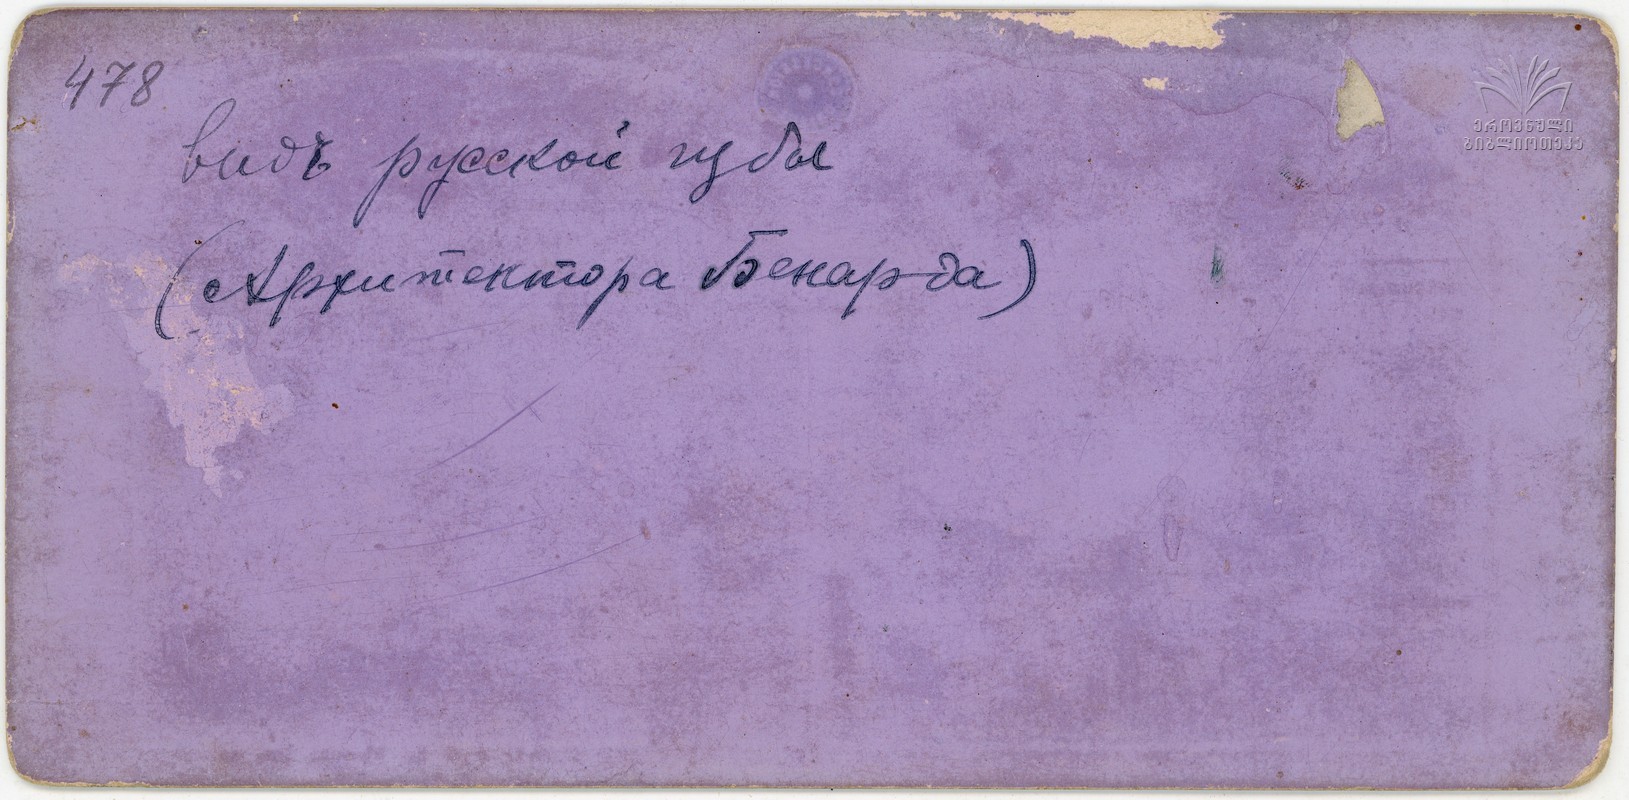 478
видъ русской избы
(Архитектора Бенарда)
ეროვნული
ბიბლიოთეკა